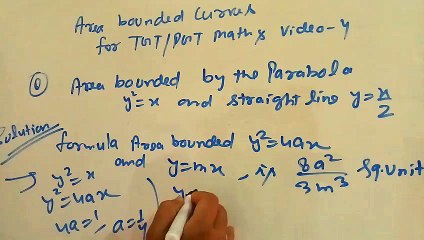 Area bounded Curves
for TGT/PGT Maths Video-4
Q Area bounded by the Parabola
y²=x and straight line y=x/2
Solution
formula Area bounded y²=4ax
and y=mx, is 8a²/3m³ Sq.Unit
→ y²=x
y²=4ax
4a=1, a=1/4
y